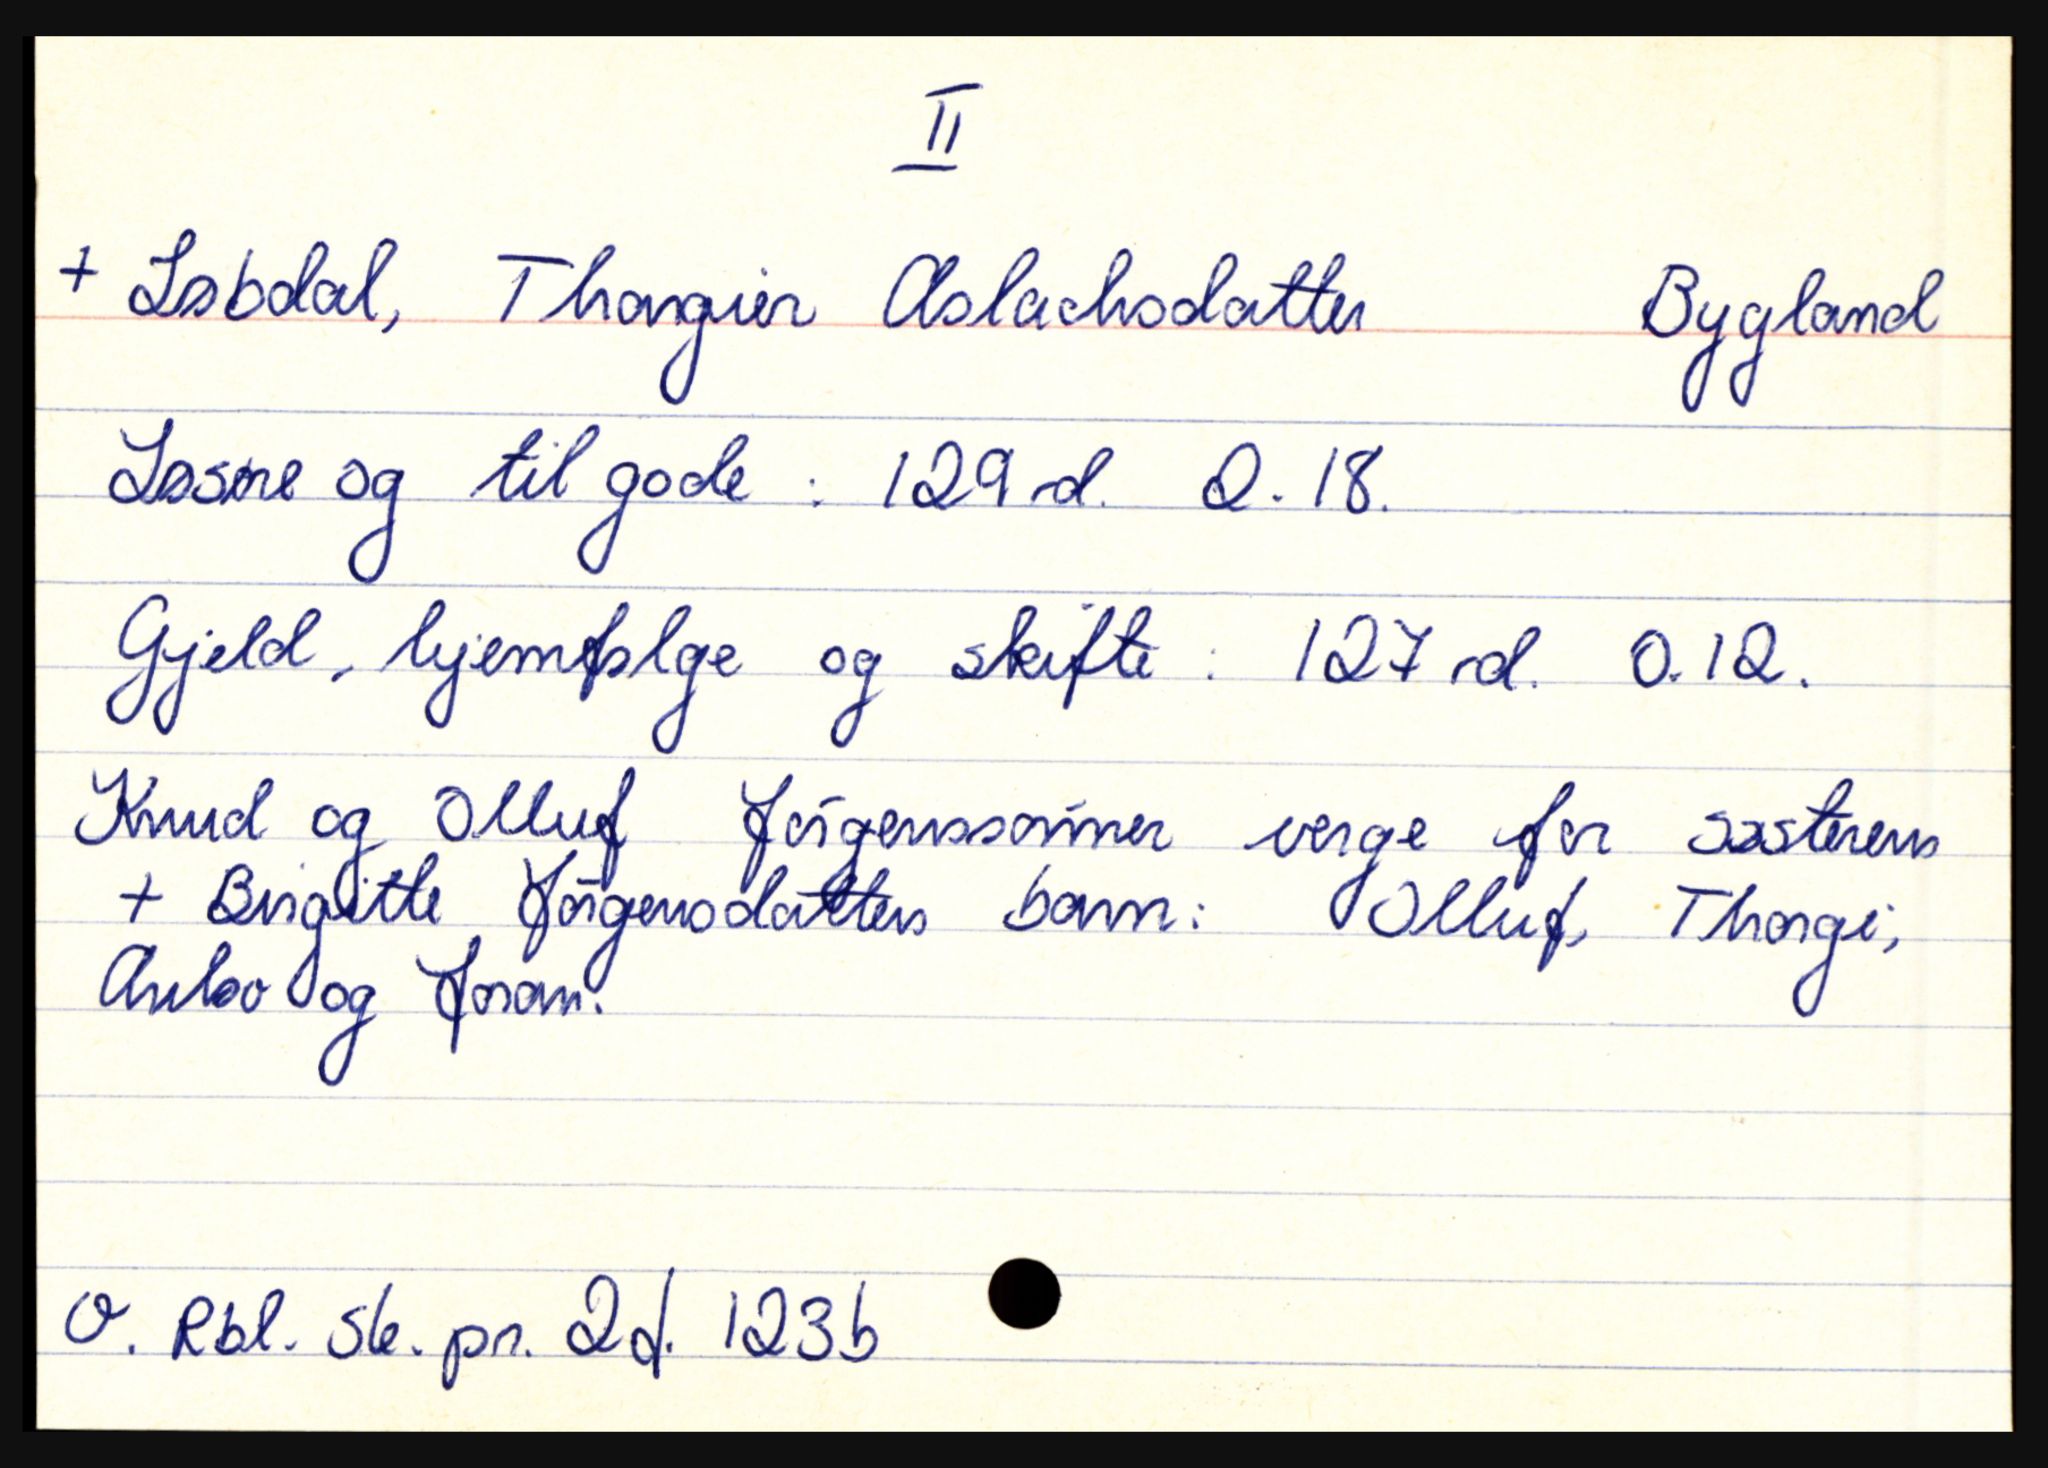 II
+ Løbdal, Thorgier Aslachsdatter Bygland
Løsøre og til gode : 129 rd. 2. 18.
Gjeld, hjemfølge og skifte : 127 rd. 0. 12.
Knud og Olluf Jörgenssönner verge for søsterens
+ Birgitte Jörgensdatters barn: Olluf, Thorgi,
Anlov og Joran.
O. Rbl. Sk. pr. 2 f. 123b